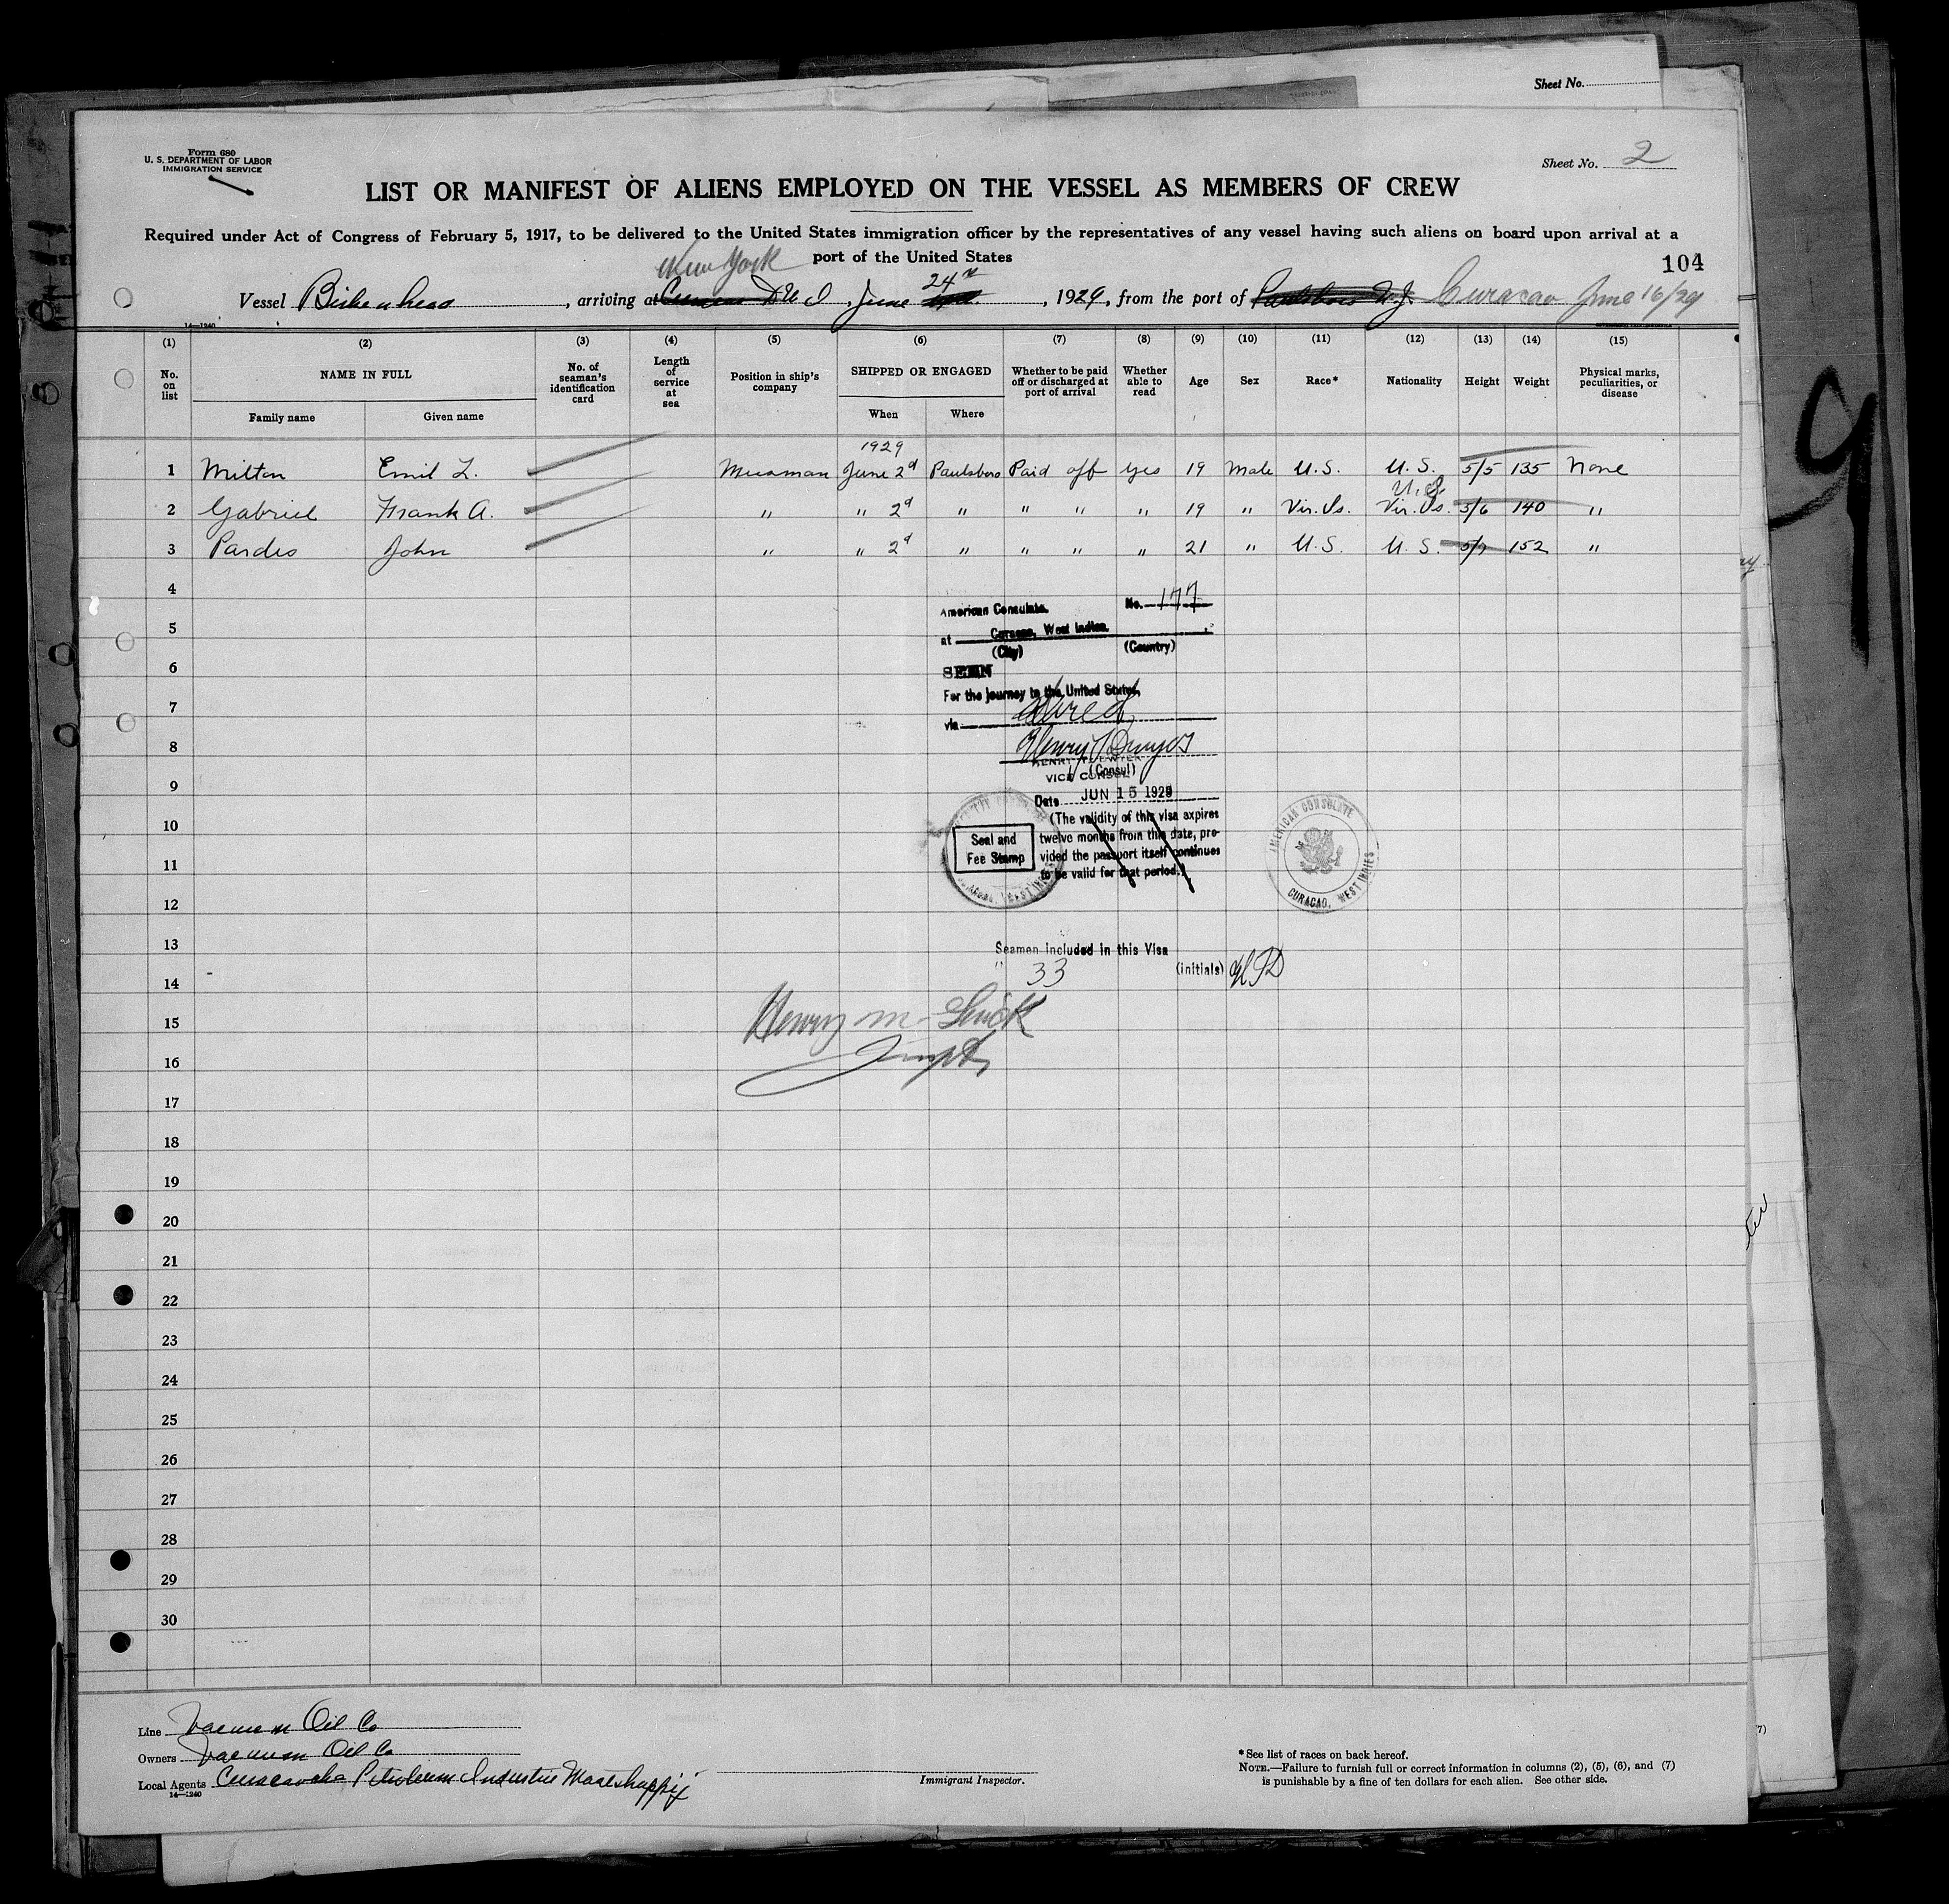 Sheet No.
Form 680
U. S. DEPARTMENT OF LABOR
IMMIGRATION SERVICE
Sheet No. 2
LIST OR MANIFEST OF ALIENS EMPLOYED ON THE VESSEL AS MEMBERS OF CREW
Required under Act of Congress of February 5, 1917, to be delivered to the United States immigration officer by the representatives of any vessel having such aliens on board upon arrival at a
port of the United States
104
New York
24th
Vessel Birkenhead, arriving at Curacao D.W.I., June, 1929, from the port of Paulsboro N.J. Curacao June 16/29
14—1240
(1) (2) (3) (4) (5) (6) (7) (8) (9) (10) (11) (12) (13) (14) (15)
No. on list
NAME IN FULL
Family name
Given name
No. of seaman's identification card
Length of service at sea
Position in ship's company
SHIPPED OR ENGAGED
When
Where
Whether to be paid off or discharged at port of arrival
Whether able to read
Age
Sex
Race*
Nationality
Height
Weight
Physical marks, peculiarities, or disease
1929
1 Milton Emil L. Messman June 2d Paulsboro Paid off yes 19 Male U.S. U.S. 5/5 135 None
U.S.
2 Gabriel Frank A. " " 2d " " " " 19 " Vir. Is. Vir. Is. 5/6 140 "
3 Pardes John " " 2d " " " " 21 " U.S. U.S. 5/7 152 "
4
American Consulate. No. 177
5
at Curacao, West Indies.
(City) (Country)
6
SEEN
For the journey to the United States,
7
via direct
8
Henry T Dwyer
HENRY T. DWYER
VICE CONSUL
(Consul)
9
Date JUN 15 1929
10
(The validity of this visa expires
twelve months from this date, pro-
vided the passport itself continues
to be valid for that period.)
Seal and
Fee Stamp
AMERICAN CONSULATE
CURACAO, WEST INDIES
11
12
13
Seamen included in this Visa
33 (initials) HTD
14
15
Henry M
16
Inspt
17
18
19
20
21
22
23
24
25
26
27
28
29
30
Line Vacuum Oil Co
Owners Vacuum Oil Co
Local Agents Curacaosche Petroleum Industrie Maatshappij
14—1240
Immigrant Inspector.
* See list of races on back hereof.
NOTE.—Failure to furnish full or correct information in columns (2), (5), (6), and (7)
is punishable by a fine of ten dollars for each alien. See other side.